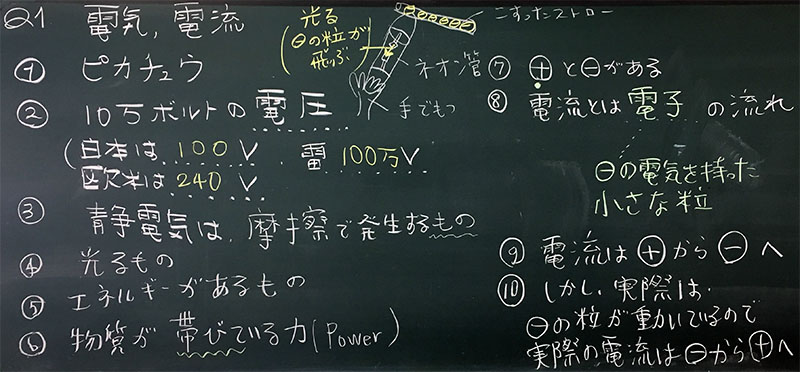 Q1 電気, 電流
① ピカチュウ
② 10万ボルトの電圧
(日本は 100V. 雷 100万V
欧米は 240V
③ 静電気は, 摩擦で発生するもの
④ 光るもの
⑤ エネルギーがあるもの
⑥ 物質が 帯びている力(Power)
光る
(⊖の粒が
飛ぶ)
こすったストロー
ネオン管
手でもつ
⑦ ⊕と⊖がある
⑧ 電流とは 電子 の流れ
⊖の電気を持った
小さな粒
⑨ 電流は ⊕から ⊖へ
⑩ しかし, 実際は.
⊖の粒が動いているので
実際の電流は⊖から⊕へ